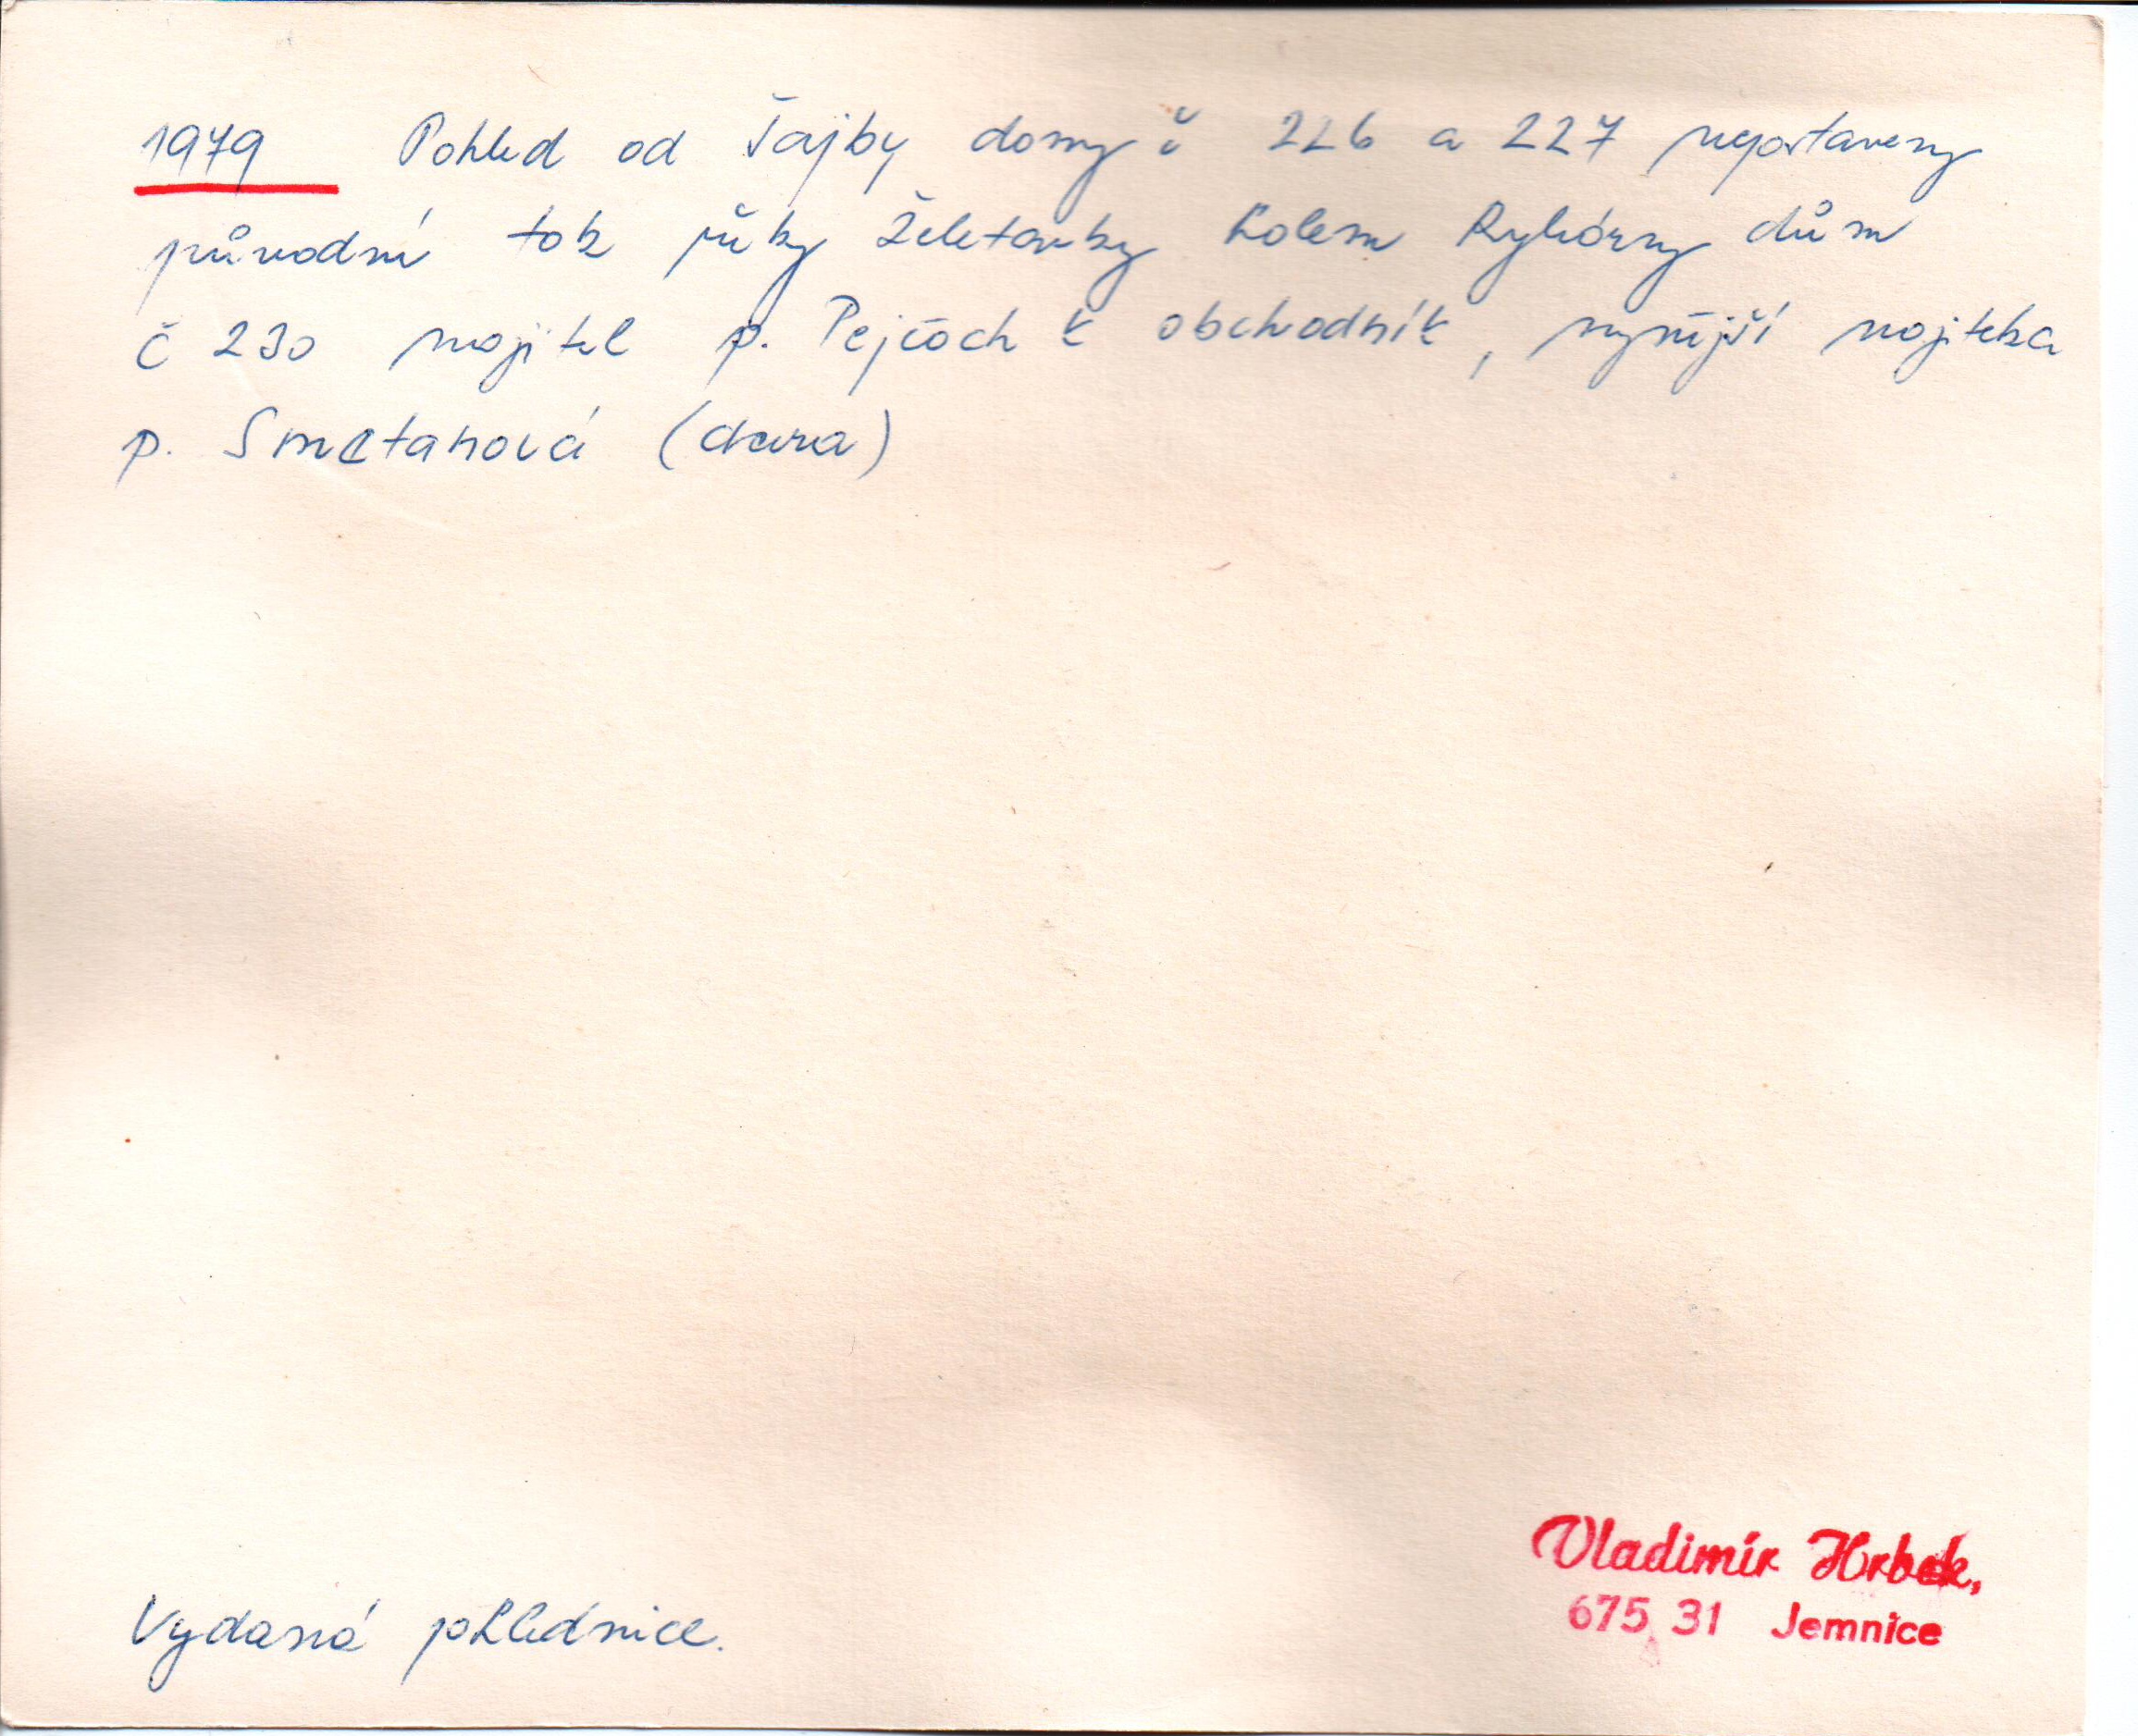 1979 Pohled od Šajby domy č 226 a 227 nepostaveny
původní tok řeky Želetavky kolem Rybárny dům
č 230 majitel p. Pejčoch obchodník, nynější majitelka
p. Smetanová (dcera)
Vydaná pohlednice.
Vladimír Hrbek,
675 31 Jemnice